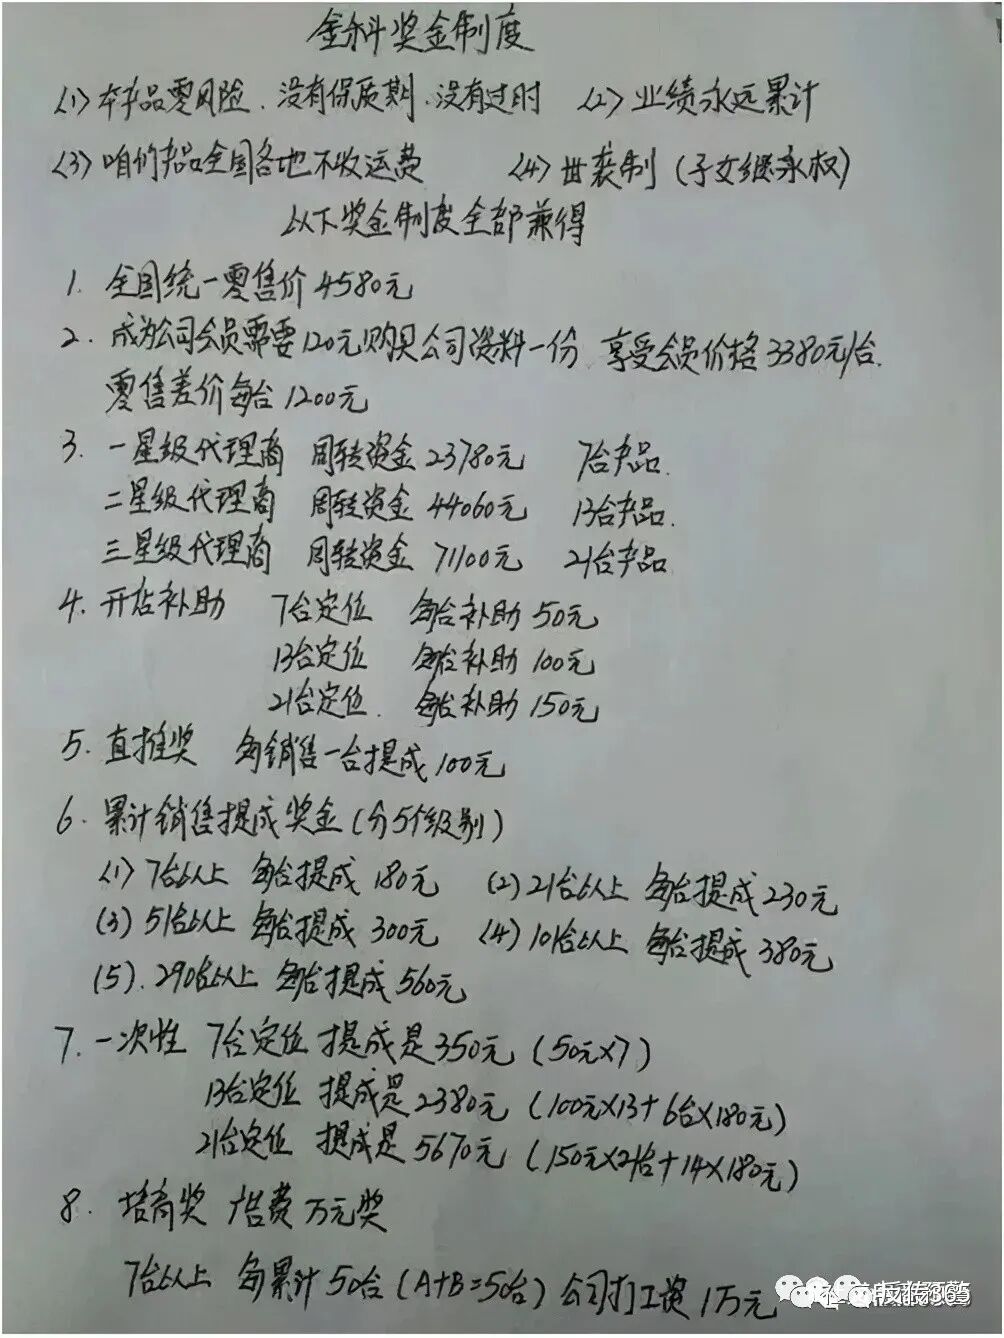 金科奖金制度
(1)本产品零风险、没有保质期、没有过时 (2)业绩永远累计
(3)咱们产品全国各地不收运费 (4)世袭制(子女继承权)
以下奖金制度全部兼得
1. 全国统一零售价4580元
2. 成为公司会员需要120元购买公司资料一份、享受会员价格3380元/台.
零售差价每台1200元
3. 一星级代理商 周转资金23780元 7台产品.
二星级代理商 周转资金44060元 13台产品.
三星级代理商 周转资金71100元 21台产品
4. 开店补助 7台定位 每台补助50元
13台定位 每台补助100元
21台定位. 每台补助150元
5. 直推奖 每销售一台提成100元
6. 累计销售提成奖金(分5个级别)
(1)7台以上 每台提成180元 (2)21台以上 每台提成230元
(3)51台以上 每台提成300元 (4)101台以上 每台提成380元
(5).290台以上 每台提成560元
7. 一次性 7台定位 提成是350元(50元×7)
13台定位 提成是2380元(100元×13+6台×180元)
21台定位 提成是5670元(150元×21台+14×180元)
8. 培育奖 广告费万元奖
7台以上 每累计50台(A+B=50台)公司打工资1万元
反传365